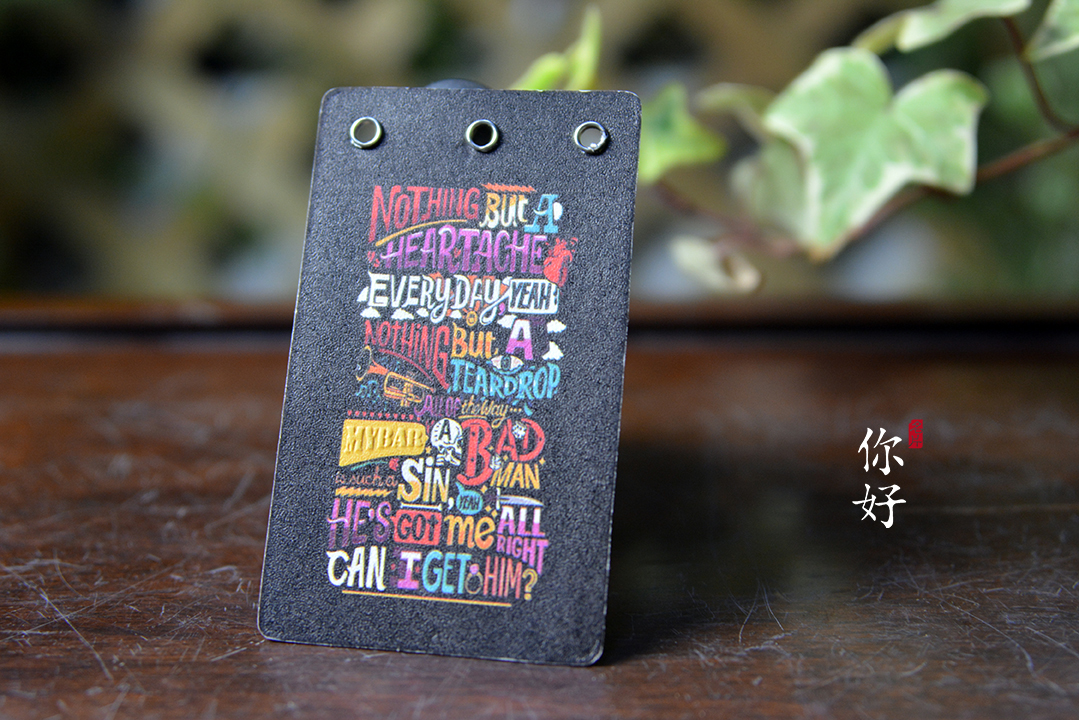 NOTHING BUT A
HEARTACHE
EVERYDAY, YEAH
NOTHING BUT A
TEARDROP
ALL OF the Way...
MY BAE A BAD
is such a SIN, YEAH is MAN
HE'S GOT me ALL
RIGHT
CAN I GET HIM?
你
好